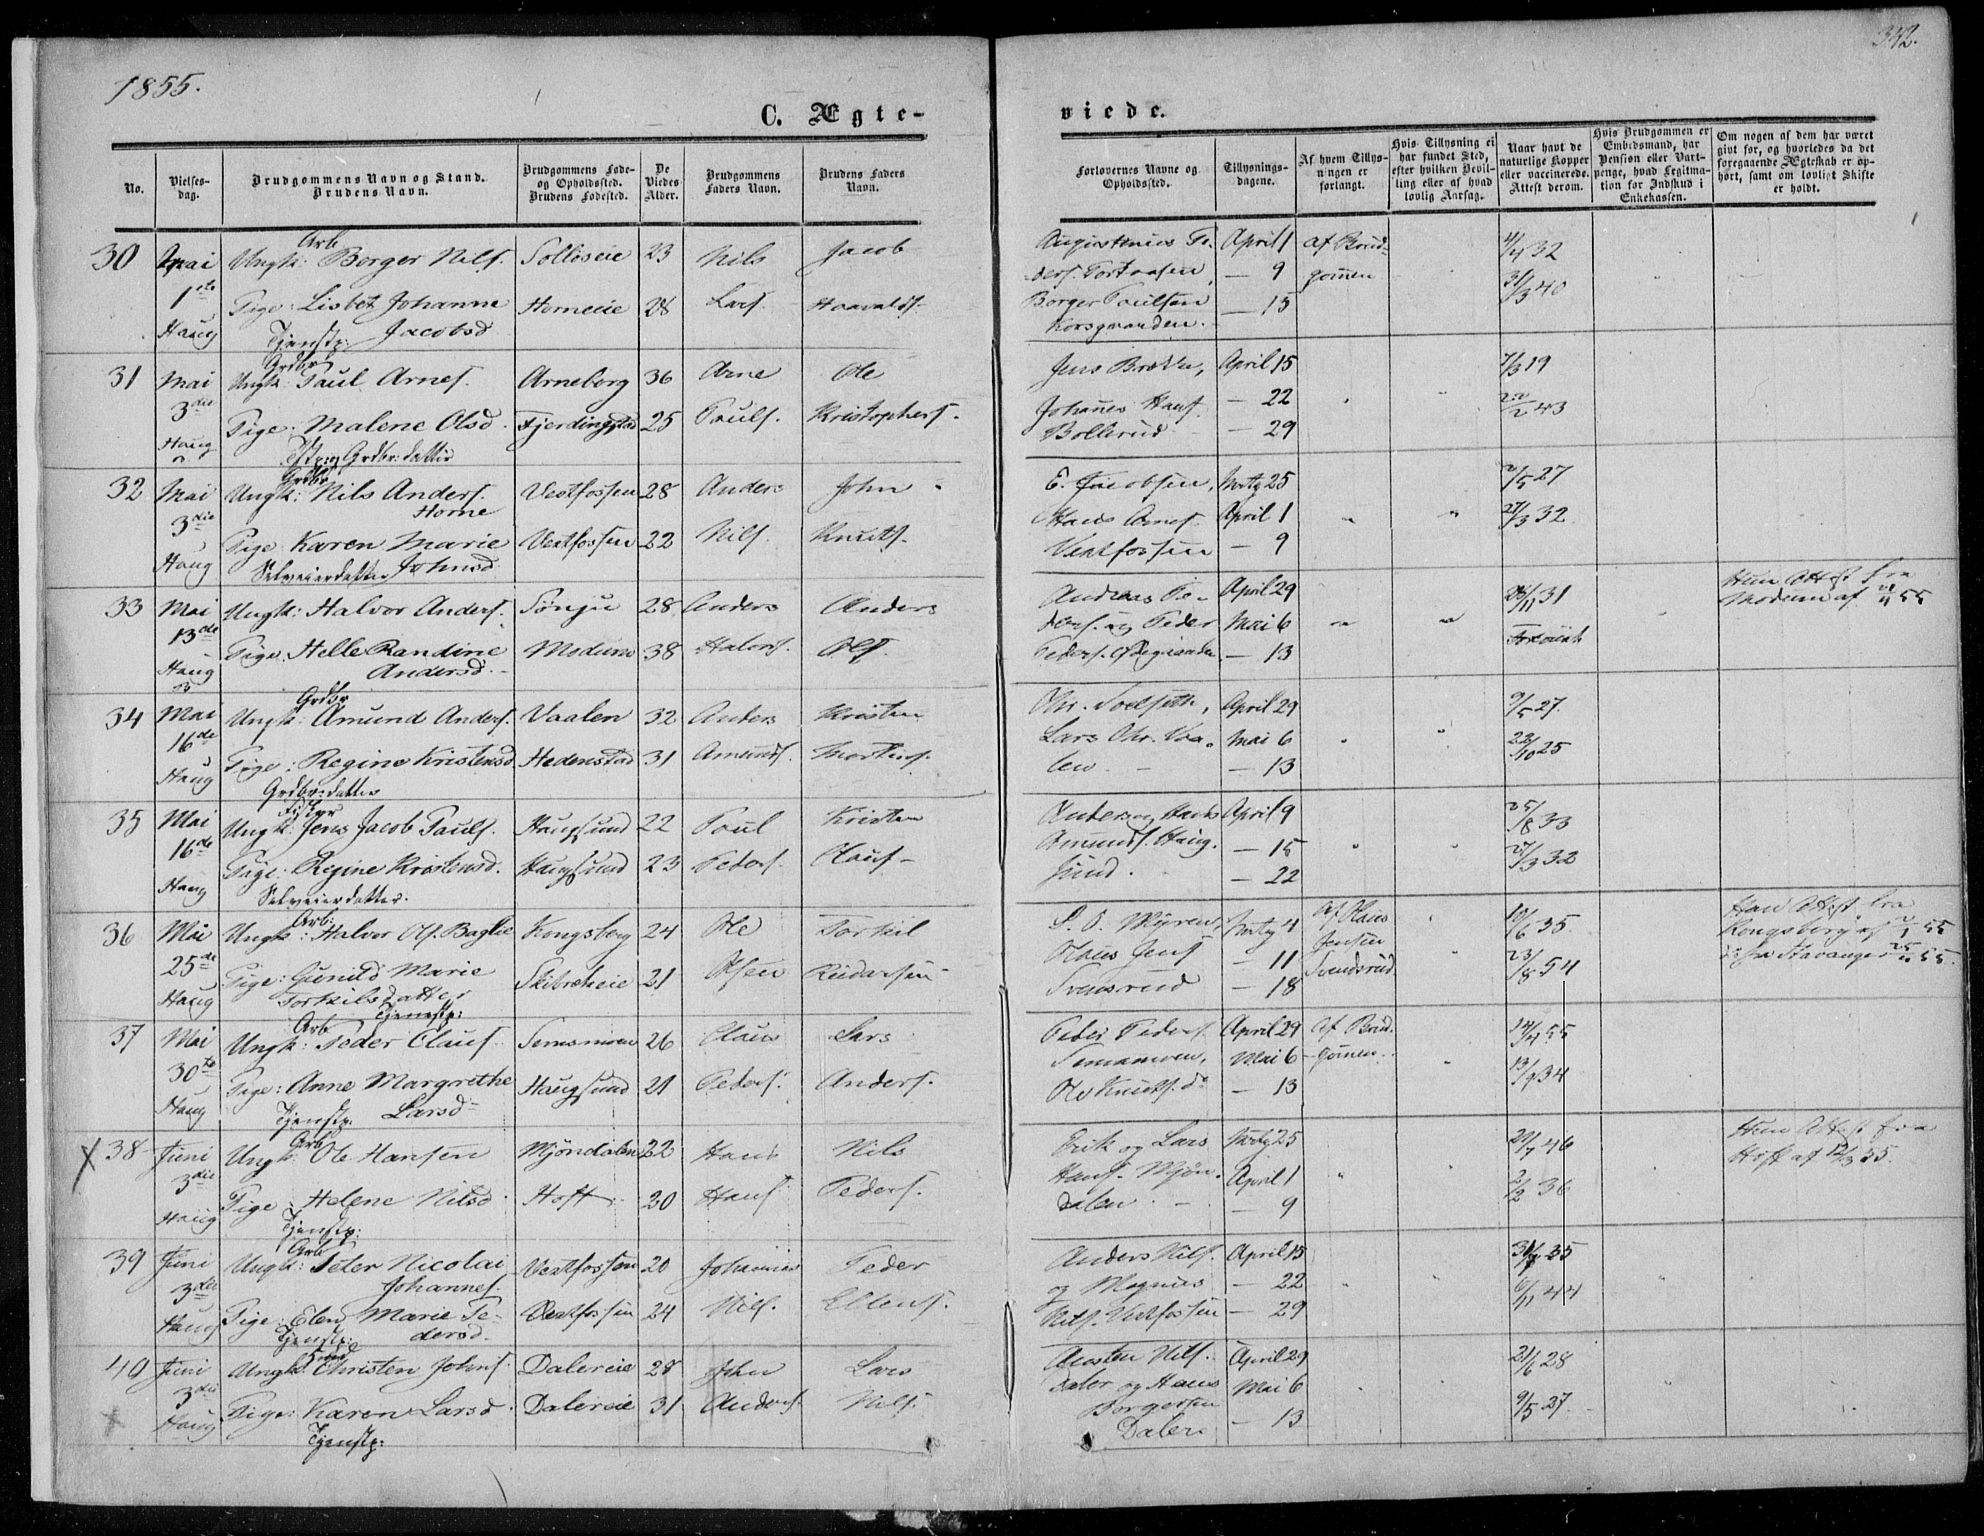 1855.
342.
C. Ægte-
viede.
No.
Vielses-
dag.
Brudgommens Navn og Stand.
Brudens Navn.
Brudgommens Føde-
og Opholdssted.
Brudens Fødested.
De
Viedes
Alder.
Brudgommens
Faders Navn.
Brudens Faders
Navn.
Forlovernes Navne og
Opholdssted.
Tillysnings-
dagene.
Af hvem Tillys-
ningen er
forlangt.
Hvis Tillysning ei
har fundet Sted,
efter hvilken Bevil-
ling eller af hvad
lovlig Aarsag.
Naar havt de
naturlige Kopper
eller vaccinerede.
Attest derom.
Hvis Brudgommen er
Embedsmand, har
Pension eller Vart-
penge, hvad Legitima-
tion for Indskud i
Enkekassen.
Om nogen af dem har været
givt før, og hvorledes da det
foregaaende Ægteskab er op-
hørt, samt om lovligt Skifte
er holdt.
30 Mai Ungk: Arb Borger Nils. Solløseie 23 Nils Jacob April 1 af Brud- 32
1ste Pige: Lisbet Johanne Horneeie 28 Lars. Haavalds. — 9 gomen 31/3 40
Haug Tjenstp: Jacobsd Borger Poulsen — 15
Korsgranden.
31 Mai Ungk: Grdbr Paul Arnes. Arneberg 36 Arne Ole Jens Brekke, April 15 7/3 19
3die Pige: Malene Olsd. Fjerdingstad 25 Pouls. Kristophers. Johanes Hans. — 22 43
Haug Grdbr:datter Bollerud — 29
32 Mai Ungk: Grdbr Nils Anders. Vestfossen 28 Anders John E. Jacobsen, Mrtz 25 2/5 27
Horne
3die Pige Karen Marie Vestfossen 22 Nils. Knuts. Hans Arnes. April 1 27/3 32
Haug Selveierdatter Johnsd. Vestfossen — 9
33 Mai Ungk: Halvor Anders. Sønju 28 Anders Anders Andreas Pe- April 29 31 Hun Attest fra
13de Pige: Helle Randine Modum 38 Halvors. Ols. ders. og Peder Mai 6 Modum af 55
Haug Andersd. Peders. — 13
34 Mai Ungk: Grdbr Amund Anders. Vaalen 32 Anders Kristen April 29 9/5 27.
16de Pige: Regine Kristensd Hedenstad 31 Amunds. Mortens. Lars Chr. Vaa- Mai 6 22/10 25
Haug Grdbr:datter len. — 13
35 Mai Ungk: Jens Jacob Pauls. Haugsund 22 Poul Kristen Anders og Hans April 9 25/8 33
16de Pige: Regine Kristensd. Haugsund 23 Peders. Claus. Amunds. Haug- — 15 32
Haug Selveierdatter. sund. — 22
36 Mai Ungk: Arb: Halvor Ols. Baglie Kongsberg 24 Ole Torkil Myren, Mrtz 4 af Hans 10/6 35. Han Attest fra
25de Pige: Gunild Marie Skibrekeie 21 Olsen Reiersen Hans Jens. — 11 Jensen 23/8 54 Kongsberg af 55
Haug Torkilsdatter Svensrud — 18 Svendsrud fra Stavanger 55.
Tjenstp:
37 Mai Ungk: Arb Peder Claus. Semsmoen 26 Claus Lars Peder Peders. April 29 af Brud- 55
30te Pige: Anne Margrethe Haugsund 21 Peders. Anders. Semsmoen, Mai 6 gomen. 13/9 34
Haug Tjenstp. Larsd Ole Knuts. do — 13
38 Juni Ungk: Arb Ole Hansen Mjøndalen 22 Hans Nils Erik og Lars Mrtz 25 46 Hun Attest fra
3die Pige Helene Nilsd. Hoff 20 Hans. Peders. Hans. Mjøn- April 1 2/2 36 Hoff af 12/3 55.
Haug Tjenstp: dalen. — 9
39 Juni Ungk: Arb Peter Nicolai Vestfossen 20 Johannes Peder Anders Nils. April 15 35
Johannes.
3die Pige: Elen Marie Pe- Vestfossen 24 Nils. Ellens. og Magnus — 22 6/11 44
Haug Tjenstp: dersd. Nils. Vestfossen — 29
40 Juni Ungk: Christen Johns. Dalereie 28 John Lars Nils. April 29 21/6 28
3die Pige: Karen Larsd. Dalereie 31 Anders. Nils. Daler og Hans Mai 6 9/5 27.
Haug Tjenstp: Borgersen — 13
Dalen